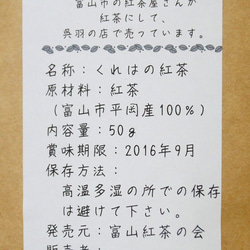 富山市の紅茶屋さんが
紅茶にして、
呉羽の店で売っています。
名称：くれはの紅茶
原材料：紅茶
（富山市平岡産100％）
内容量：50g
賞味期限：2016年9月
保存方法：
高温多湿の所での保存
は避けて下さい。
発売元：富山紅茶の会